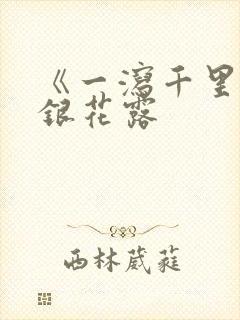 《一瀉千里
銀花露
西林葳蕤